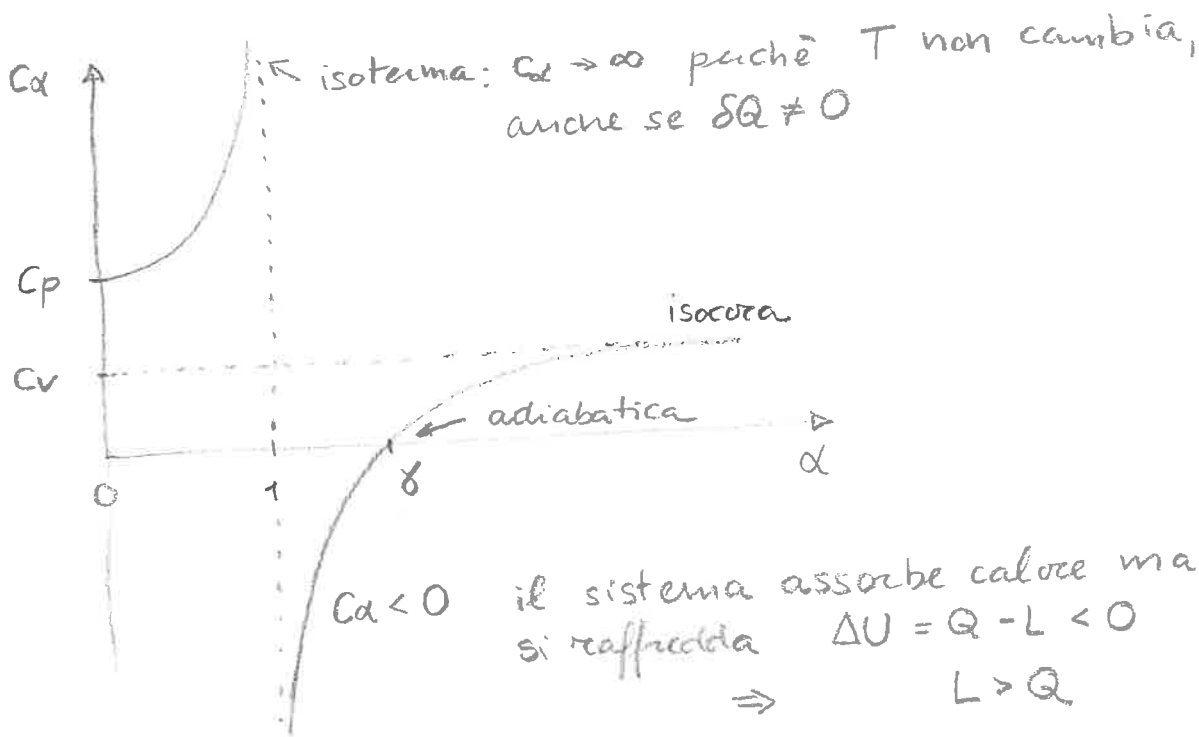 Cα
isoterma: Cα → ∞ perchè T non cambia,
anche se δQ ≠ 0
Cp
isocora
Cv
adiabatica
α
0
1
γ
Cα < 0 il sistema assorbe calore ma
si raffredda ΔU = Q - L < 0
⇒ L > Q